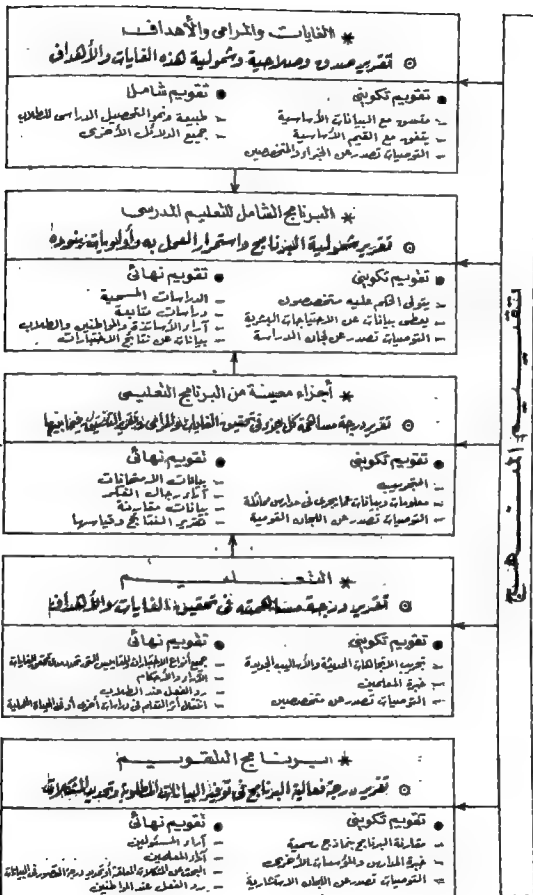 * الغايات والمرامى والأهداف
⊙ تقرير صدق وصلاحية وشمولية هذه الغايات والأهداف
• تقويم تكوينى
ـ متسق مع البيانات الأساسية
ـ يتفق مع القيم الأساسية
ـ التوصيات تصدر عن الخبراء والمتخصصين
• تقويم شامل
ـ طبيعة ونمو التحصيل الدراسى للطلاب
ـ جميع الدلائل الأخرى
* البرنامج الشامل للتعليم المدرسى
⊙ تقرير شمولية البرنامج واستمرار العمل به وأولويات بنوده
• تقويم تكوينى
ـ يتولى الحكم عليه متخصصون
ـ يعطى بيانات عن الاحتياجات البشرية
ـ التوصيات تصدر عن لجان الدراسة
• تقويم نهائى
ـ الدراسات المسحية
ـ دراسات متابعة
ـ آراء الأساتذة والمواطنين والطلاب
ـ بيانات عن نتائج الاختبارات
* أجزاء معينة من البرنامج التعليمى
⊙ تقرير درجة مساهمة كل جزء فى تحقيق الغايات والمرامى
• تقويم تكوينى
ـ التجريب
ـ معلومات وبيانات عما يجرى فى مدارس مماثلة
ـ التوصيات تصدر عن اللجان القومية
• تقويم نهائى
ـ بيانات الامتحانات
ـ آراء رجال الفكر
ـ بيانات مقارنة
ـ تقرير النتائج وقياسها
* التعليم
⊙ تقرير درجة مساهمته فى تحقيق الغايات والأهداف
• تقويم تكوينى
ـ تجريب الاتجاهات الحديثة والأساليب الجديدة
ـ خبرة المعلمين
ـ التوصيات تصدر عن متخصصين
• تقويم نهائى
ـ جميع أنواع الاختبارات
ـ الآراء والأحكام
ـ رد الفعل عند الطلاب
ـ انتقال أثر التعلم فى دراسات أخرى أو فى الحياة العملية
* برنامج التقويم
⊙ تقرير درجة فعالية البرنامج فى توفير البيانات المطلوبة وتحديد المشكلات
• تقويم تكوينى
ـ مقارنة البرنامج بنماذج رسمية
ـ خبرة المدارس والمؤسسات الأخرى
ـ التوصيات تصدر عن اللجان الاستشارية
• تقويم نهائى
ـ آراء المسئولين
ـ آراء المعلمين
ـ البحث عن المشكلات
ـ رد الفعل عند المواطنين
تقييم المنهج